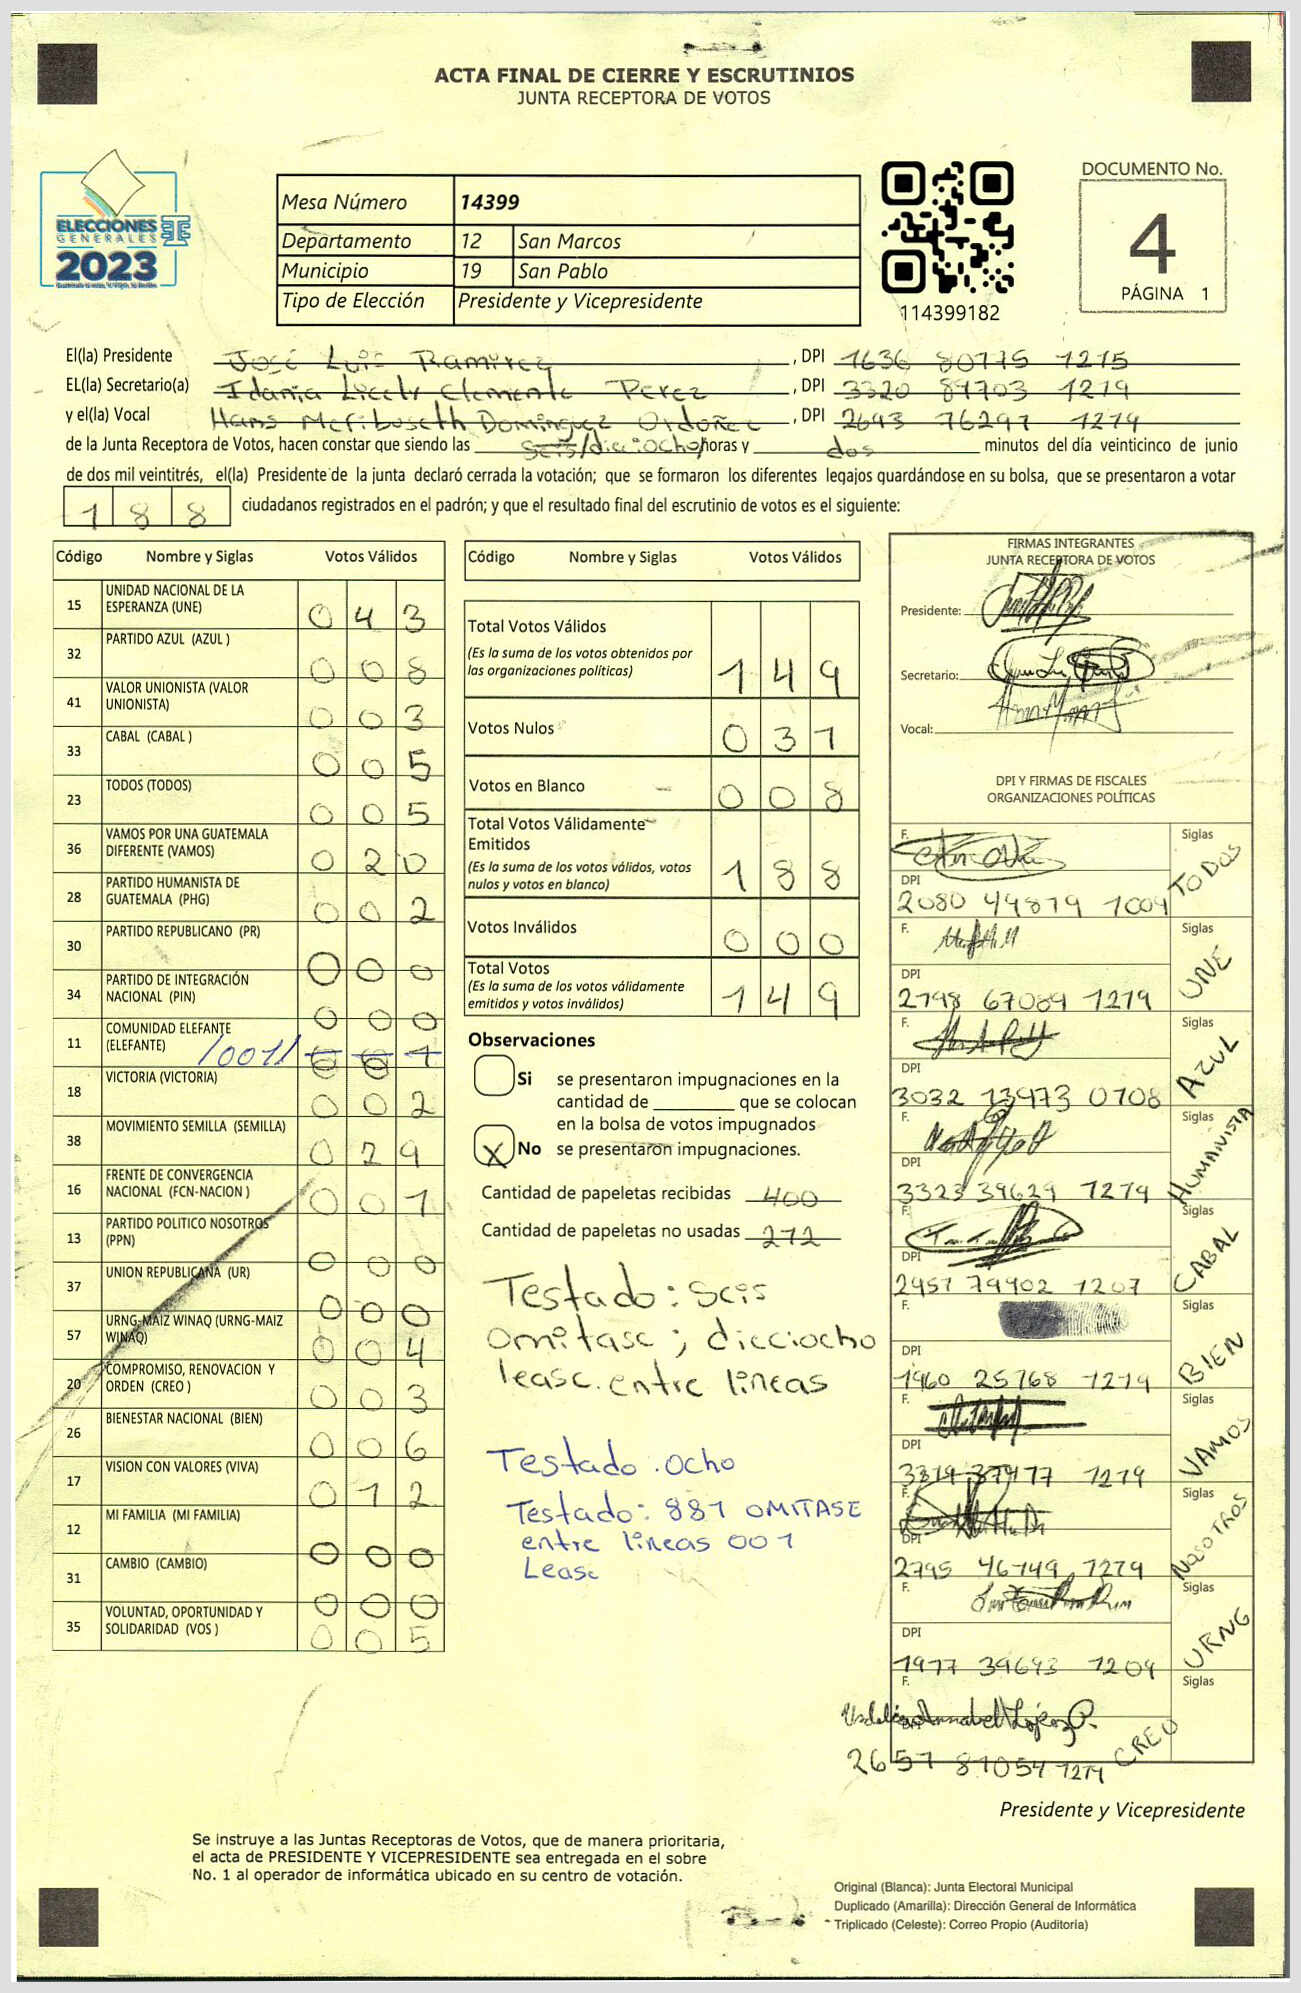 ACTA FINAL DE CIERRE Y ESCRUTINIOS
JUNTA RECEPTORA DE VOTOS
ELECCIONES
GENERALES
2023
Mesa Número 14399
Departamento 12 San Marcos
Municipio 19 San Pablo
Tipo de Elección Presidente y Vicepresidente
114399182
DOCUMENTO No.
4
PÁGINA 1
El(la) Presidente José Luis Ramirez, DPI 1636 80775 1215
EL(la) Secretario(a) Idania Licely Clemente Perez, DPI 3320 89703 1219
y el(la) Vocal Hans Mefiboseth Dominguez Ordoñez, DPI 2693 76297 1219
de la Junta Receptora de Votos, hacen constar que siendo las seis/dieciocho/horas y dos minutos del día veinticinco de junio
de dos mil veintitrés, el(la) Presidente de la junta declaró cerrada la votación; que se formaron los diferentes legajos guardándose en su bolsa, que se presentaron a votar
188 ciudadanos registrados en el padrón; y que el resultado final del escrutinio de votos es el siguiente:
Código Nombre y Siglas Votos Válidos
15 UNIDAD NACIONAL DE LA ESPERANZA (UNE) 0 4 3
32 PARTIDO AZUL (AZUL ) 0 0 8
41 VALOR UNIONISTA (VALOR UNIONISTA) 0 0 3
33 CABAL (CABAL ) 0 0 5
23 TODOS (TODOS) 0 0 5
36 VAMOS POR UNA GUATEMALA DIFERENTE (VAMOS) 0 2 0
28 PARTIDO HUMANISTA DE GUATEMALA (PHG) 0 0 2
30 PARTIDO REPUBLICANO (PR) 0 0 0
34 PARTIDO DE INTEGRACIÓN NACIONAL (PIN) 0 0 0
11 COMUNIDAD ELEFANTE (ELEFANTE) /001/
18 VICTORIA (VICTORIA) 0 0 2
38 MOVIMIENTO SEMILLA (SEMILLA) 0 2 9
16 FRENTE DE CONVERGENCIA NACIONAL (FCN-NACION ) 0 0 1
13 PARTIDO POLITICO NOSOTROS (PPN) 0 0 0
37 UNION REPUBLICANA (UR) 0 0 0
57 URNG-MAIZ WINAQ (URNG-MAIZ WINAQ) 0 0 4
20 COMPROMISO, RENOVACION Y ORDEN (CREO ) 0 0 3
26 BIENESTAR NACIONAL (BIEN) 0 0 6
17 VISION CON VALORES (VIVA) 0 1 2
12 MI FAMILIA (MI FAMILIA) 0 0 0
31 CAMBIO (CAMBIO) 0 0 0
35 VOLUNTAD, OPORTUNIDAD Y SOLIDARIDAD (VOS ) 0 0 5
Código Nombre y Siglas Votos Válidos
Total Votos Válidos 1 4 9
(Es la suma de los votos obtenidos por
las organizaciones políticas)
Votos Nulos 0 3 1
Votos en Blanco 0 0 8
Total Votos Válidamente
Emitidos 1 8 8
(Es la suma de los votos válidos, votos
nulos y votos en blanco)
Votos Inválidos 0 0 0
Total Votos 1 4 9
(Es la suma de los votos válidamente
emitidos y votos inválidos)
Observaciones
Si se presentaron impugnaciones en la
cantidad de ________ que se colocan
en la bolsa de votos impugnados
X No se presentaron impugnaciones.
Cantidad de papeletas recibidas 400
Cantidad de papeletas no usadas 272
Testado: Seis
omitase; dieciocho
lease. entre lineas
Testado. ocho
Testado: 881 OMITASE
entre lineas 001
Lease
FIRMAS INTEGRANTES
JUNTA RECEPTORA DE VOTOS
Presidente:
Secretario:
Vocal:
DPI Y FIRMAS DE FISCALES
ORGANIZACIONES POLÍTICAS
F. Siglas TODOS
DPI
2080 49879 1009
F. Siglas UNE
DPI
2798 67089 1219
F. Siglas AZUL
DPI
3032 13973 0708
F. Siglas HUMANISTA
DPI
3323 39629 1219
F. Siglas CABAL
DPI
2957 79902 1207
F. Siglas BIEN
DPI
1960 25768 1219
F. Siglas VAMOS
DPI
3319 37977 1219
F. Siglas NOSOTROS
DPI
2795 46749 1279
F. Siglas URNG
DPI
1977 39693 1209
F. Siglas CREO
2657 81054 1219
Presidente y Vicepresidente
Se instruye a las Juntas Receptoras de Votos, que de manera prioritaria,
el acta de PRESIDENTE Y VICEPRESIDENTE sea entregada en el sobre
No. 1 al operador de informática ubicado en su centro de votación.
Original (Blanca): Junta Electoral Municipal
Duplicado (Amarilla): Dirección General de Informática
Triplicado (Celeste): Correo Propio (Auditoría)